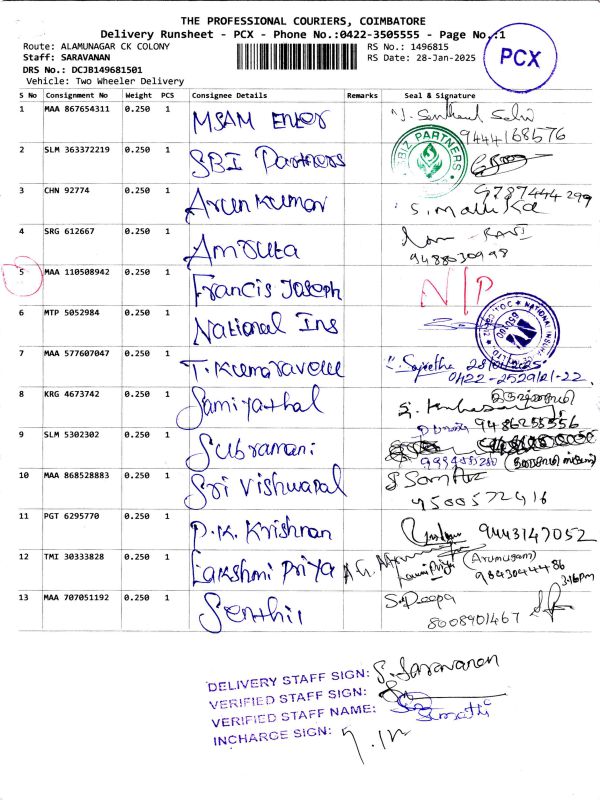 THE PROFESSIONAL COURIERS, COIMBATORE
Delivery Runsheet - PCX - Phone No.:0422-3505555 - Page No.:1
Route: ALAMUNAGAR CK COLONY
RS No.: 1496815
Staff: SARAVANAN
RS Date: 28-Jan-2025
DRS No.: DCJB149681501
Vehicle: Two Wheeler Delivery
PCX
S No Consignment No Weight PCS Consignee Details Remarks Seal & Signature
1 MAA 867654311 0.250 1 MSAM Enter
9444168576
2 SLM 363372219 0.250 1 SBI Partners
BIZ PARTNERS
3 CHN 92774 0.250 1 Arunkumar 9787444299
S. Mallika
4 SRG 612667 0.250 1 Amruta RAVI
9488030998
5 MAA 110508942 0.250 1 Francis Joseph N/P
6 MTP 5052984 0.250 1 National Ins
7 MAA 577607047 0.250 1 T. Kumaravelu 28/01/2025
0422-2529121-22.
8 KRG 4673742 0.250 1 Samiyathal
9486255556
9 SLM 5302302 0.250 1 Subramani
10 MAA 868528883 0.250 1 Sri Vishwapal
9500572416
11 PGT 6295770 0.250 1 P.K. Krishnan 9443147052
12 TMI 30333828 0.250 1 Lakshmi Priya (Arumugam)
9843044486
3:16pm
13 MAA 707051192 0.250 1 Senthil S. Deepa
8008901467
DELIVERY STAFF SIGN: S. Saravanan
VERIFIED STAFF SIGN:
VERIFIED STAFF NAME: Sumathi
INCHARGE SIGN: